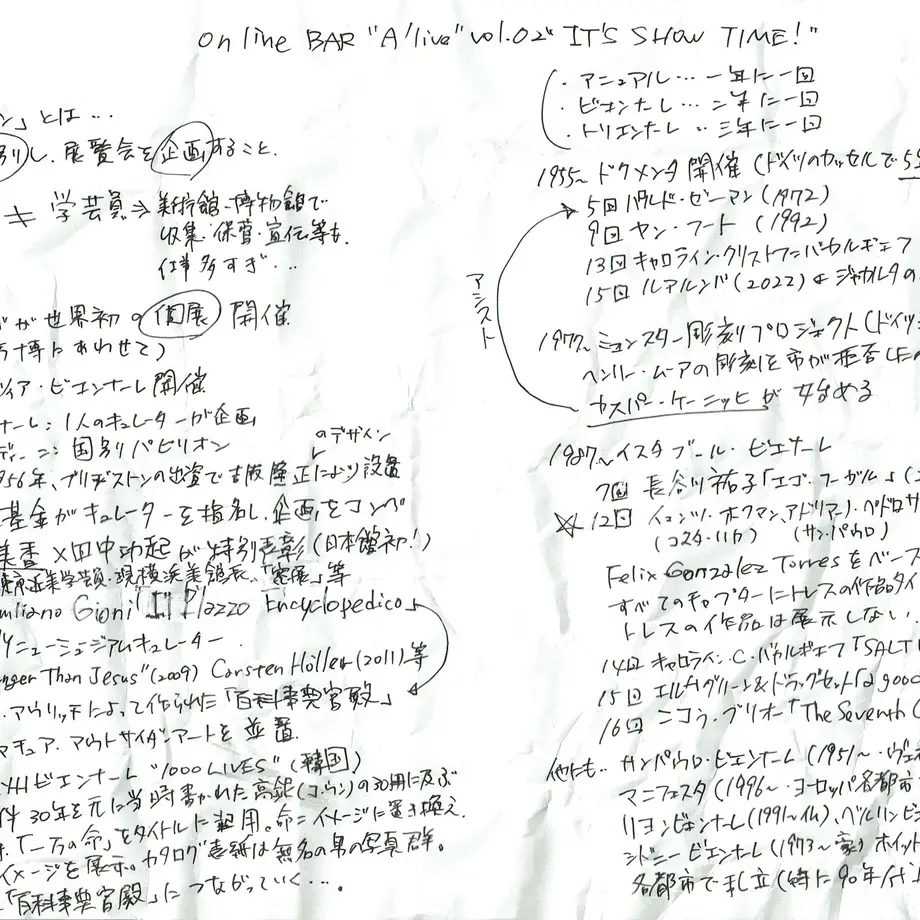 online BAR "A'live" vol.02 "IT'S SHOW TIME!"
ン」とは…
別し、展覧会を企画すること。
≠ 学芸員⇒美術館・博物館で
収集・保管・宣伝等も。
仕事多すぎ…
が世界初の個展 開催
博にあわせて)
ィア・ビエンナーレ開催
ナーレ:1人のキュレーターが企画
ディーニ:国別パビリオン
のデザイン
956年、ブリヂストンの出資で吉阪隆正により設置
基金がキュレーターを指名し、企画をコンペ
美香×田中功起が特別表彰(日本館初!)
現横浜美館長、「窓展」等
miliano Gioni "Il Plazzo Encyclopedico"
ニューミュージアムキュレーター
nger Than Jesus"(2009) Carsten Höller(2011)等
・アウリッチによって作られた「百科事典宮殿」
マチュア・アウトサイダーアートを並置
州ビエンナーレ "1000 LIVES" (韓国)
30年を元に当時書かれた高銀(コ・ウン)の30冊に及ぶ
、「一万の命」をタイトルに起用。命=イメージに置き換え、
イメージを展示。カタログ表紙は無名の男の写真群。
「百科事典宮殿」につながっていく…。
・アニュアル…一年に一回
・ビエンナーレ…二年に一回
・トリエンナーレ…三年に一回
1955~ドクメンタ開催(ドイツのカッセルで5
5回 ハラルド・ゼーマン(1972)
9回 ヤン・フート (1992)
13回 キャロライン・クリストフ=バカルギエフ
15回 ルアルンパ(2022)←ジャカルタの
アシスト
1977~ミュンスター彫刻プロジェクト(ドイツ・
ヘンリー・ムーアの彫刻を市が拒否したの
カスパー・ケーニッヒが始める
1987~イスタブール・ビエナーレ
7回 長谷川祐子「エゴ・フーガル」(
☆12回 イェンツ・ホフマン、アドリアーノ・ペドロサ
(コスタ・リカ) (サンパウロ)
Felix Gonzalez Torresをベース
すべてのチャプターにトレスの作品タイ
トレスの作品は展示しない。
14回 キャロライン・C・バカルギエフ「SALT
15回 エルムグリーン&ドラッグセット「a good
16回 ニコラ・ブリオー「The Seventh C
他にも… サンパウロ・ビエンナーレ(1951~・ヴェネ
マニフェスタ(1996~・ヨーロッパ各都市
リヨンビエンナーレ(1991~仏)、ベルリンビ
シドニービエンナーレ(1973~豪)ホイット
各都市で乱立(特に90年代